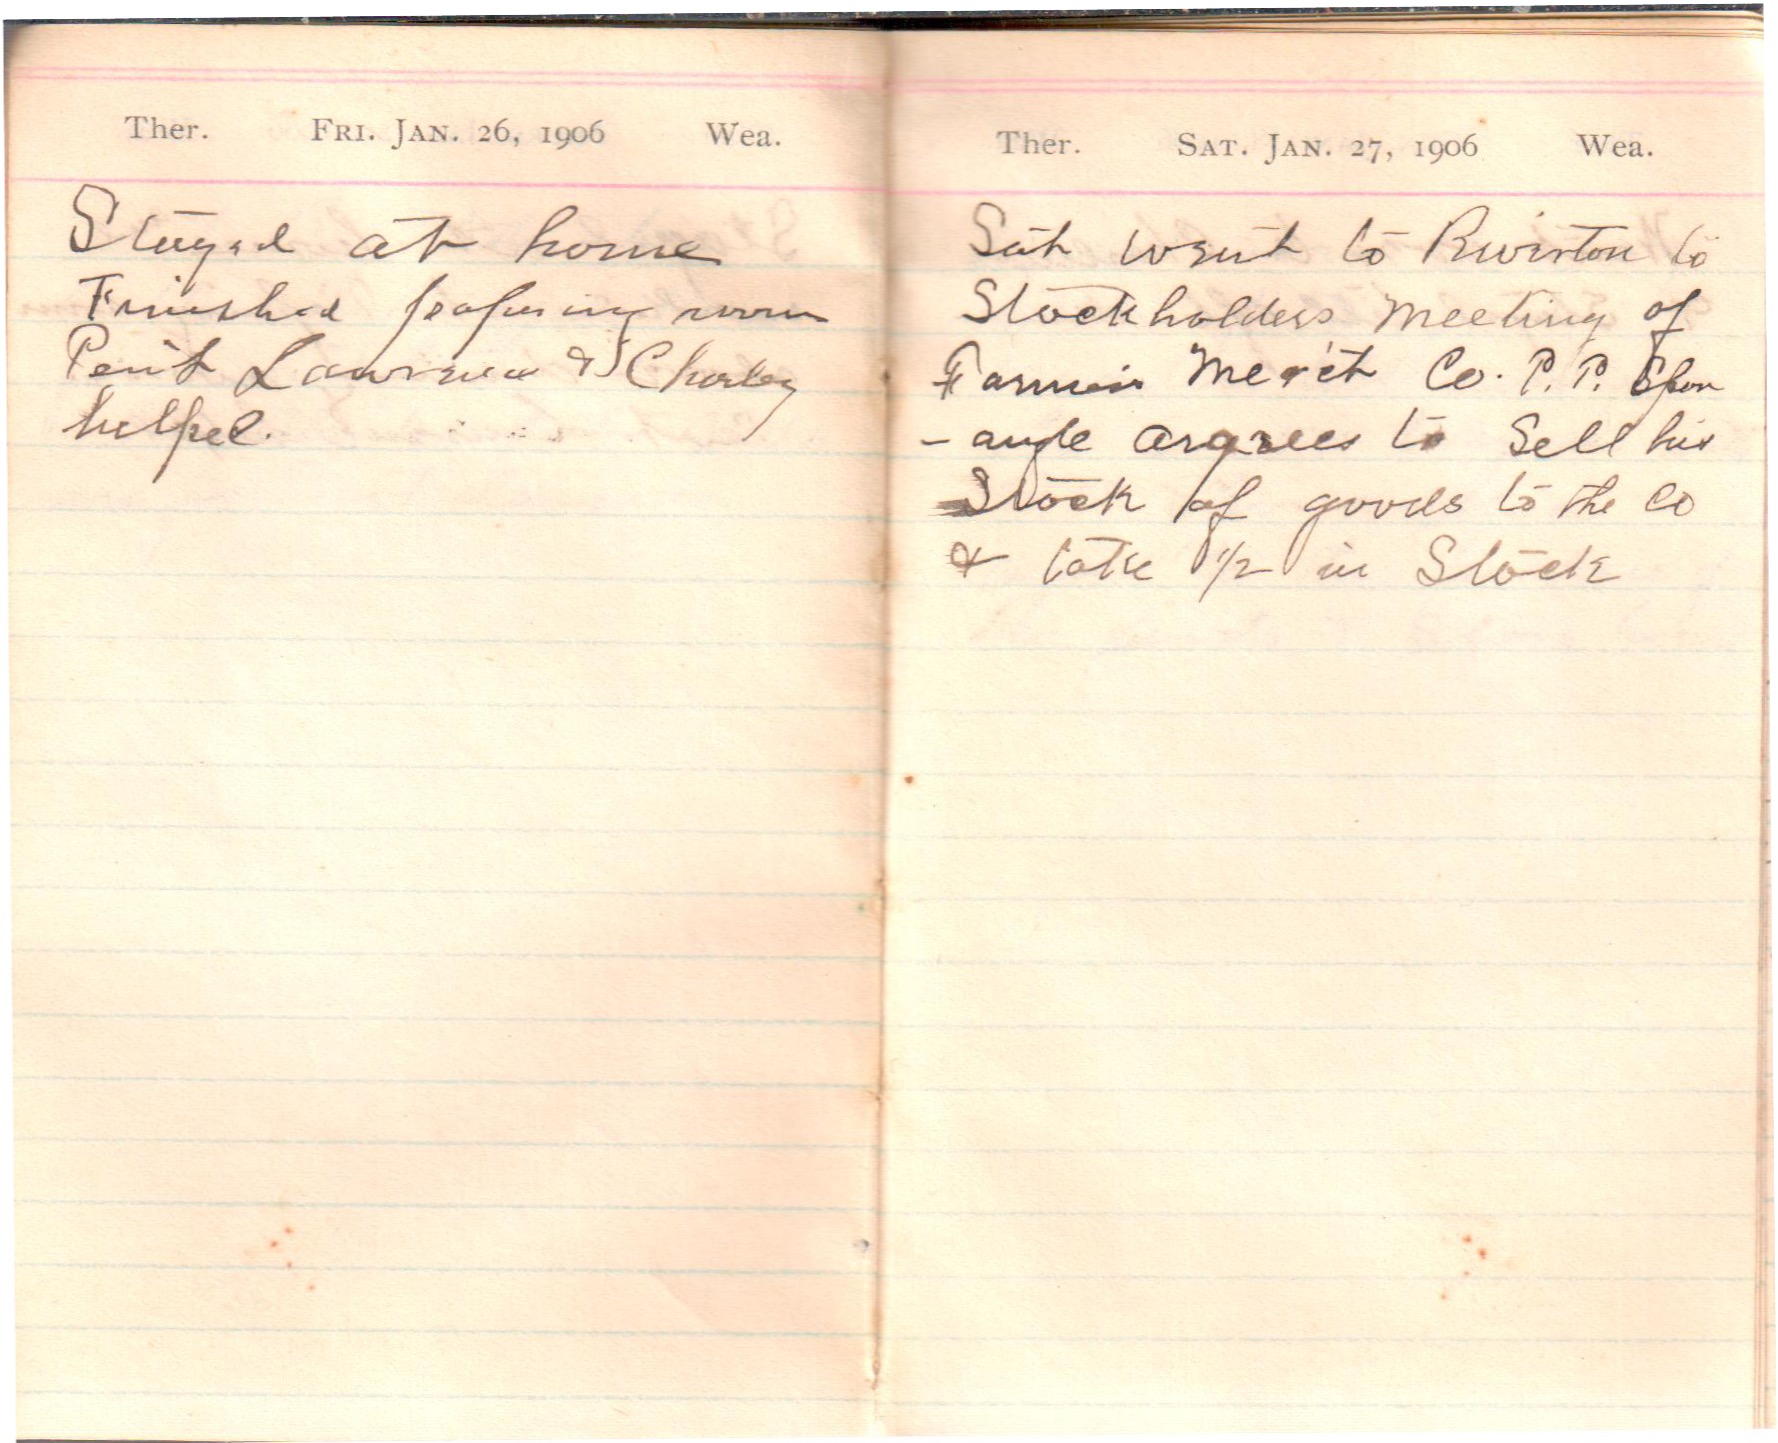 Ther. FRI. JAN. 26, 1906 Wea.
Stayed at home
Finished papering room
Lawrence & Charley
helped.
Ther. SAT. JAN. 27, 1906 Wea.
Sat went to Riverton to
Stockholders Meeting of
Farmers Merct Co. P. P. Spon
- angle argrees to Sell his
Stock of goods to the Co
& take 1/2 in Stock